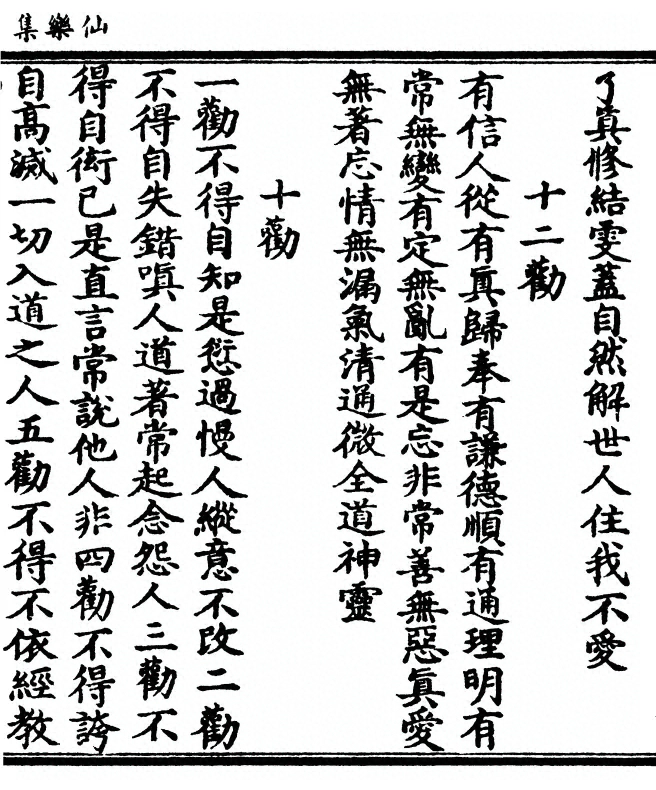 仙樂集
了真修結雯蓋自然解世人住我不愛
十二勸
有信人從有真歸奉有謙德順有通理明有
常無變有定無亂有是忘非常善無惡真愛
無著忘情無漏氣清通微全道神靈
十勸
一勸不得自知是愆過慢人縱意不改二勸
不得自失錯嗔人道著常起念怨人三勸不
得自衒已是直言常說他人非四勸不得誇
自高滅一切入道之人五勸不得不依經教